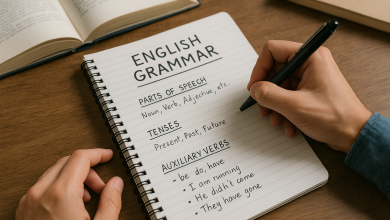 ENGLISH
GRAMMAR
PARTS OF SPEECH
Noun, Verb, Adjective, etc.
TENSES
Present, Past, Future
AUXILIARY VERBS
- be, do, have
- I am running
- He didn't come
- They have gone